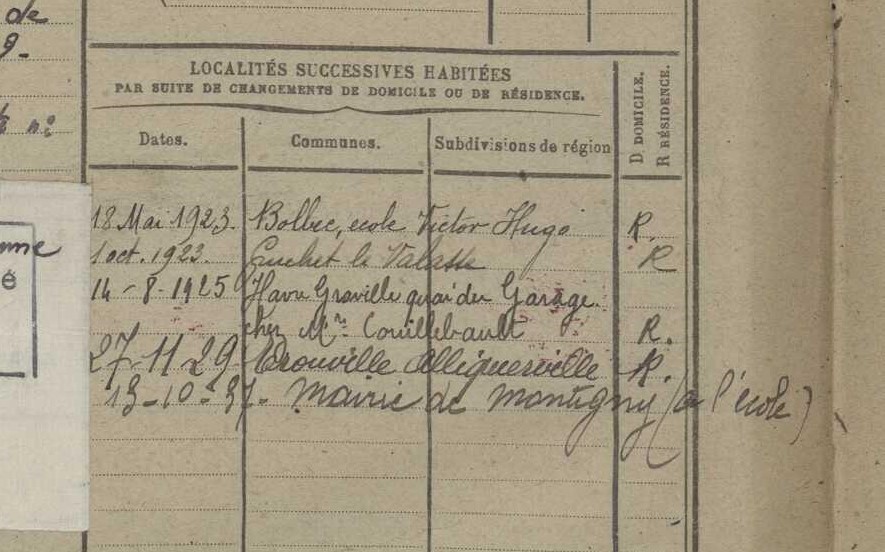 de
9-
LOCALITÉS SUCCESSIVES HABITÉES
PAR SUITE DE CHANGEMENTS DE DOMICILE OU DE RÉSIDENCE.
D. DOMICILE.
R RÉSIDENCE.
Dates.
Communes.
Subdivisions de région
18 Mai 1923. Bolbec, ecole Victor Hugo R.
1 oct. 1923. Gruchet le Valasse R
14-8-1925 Havre Graville quai du Garage
chez Mr. R.
27-11 29 Trouville Alliquerville R.
13-10-37. Mairie de Montigny (à l'école)